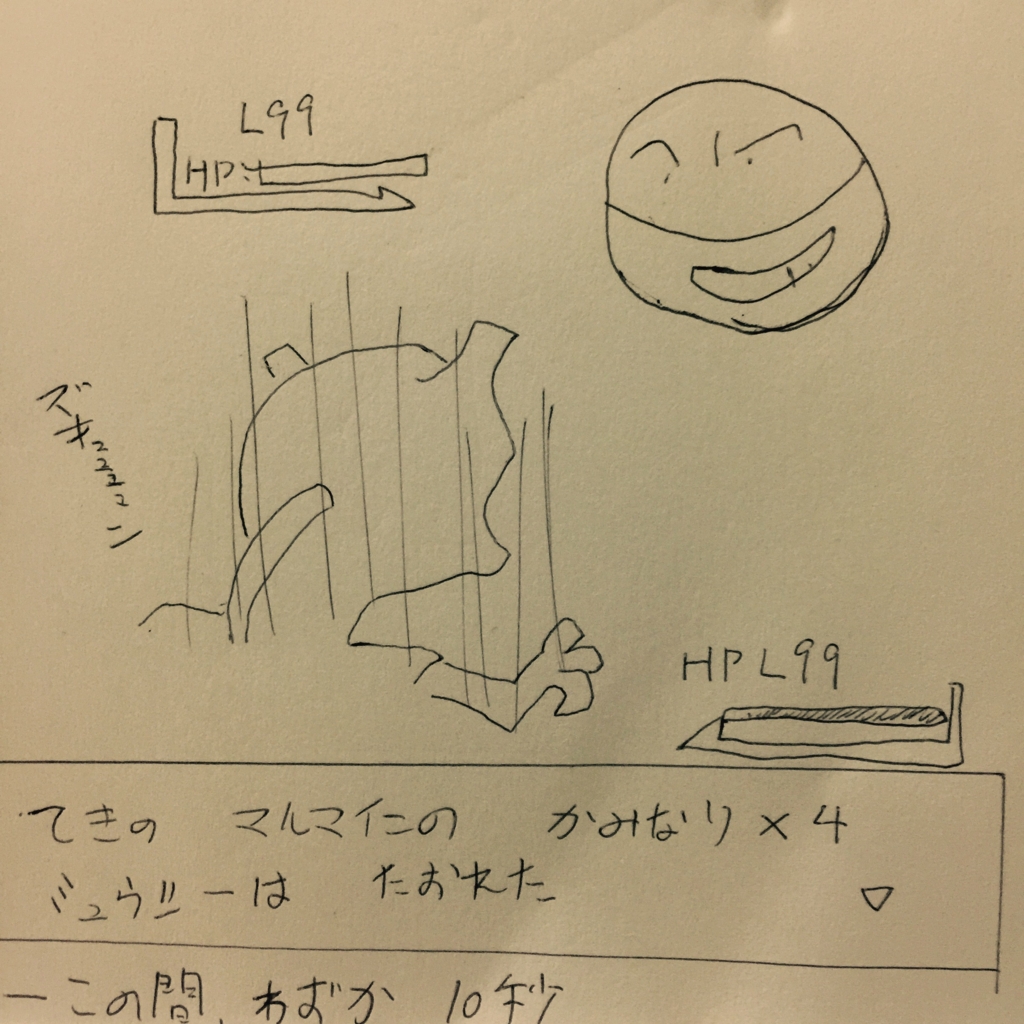 L99
HP:
ズキュュュュン
HP L99
てきの マルマインの かみなり×4
ジュゴンーは たおれた ▽
ーこの間、わずか 10秒